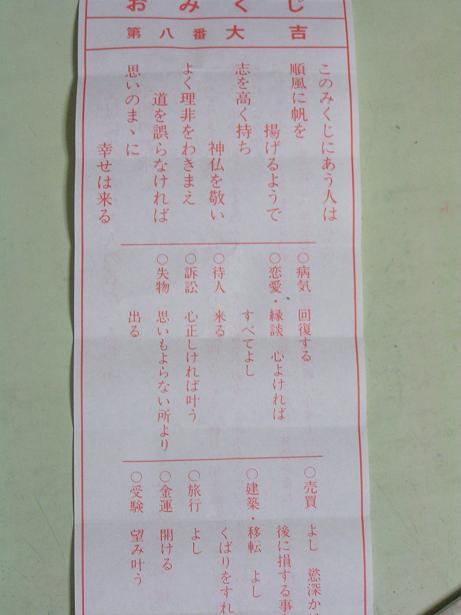 おみくじ
第八番 大吉
このみくじにあう人は
順風に帆を
揚げるようで
志を高く持ち
神仏を敬い
よく理非をわきまえ
道を誤らなければ
思いのまゝに
幸せは来る
○病気 回復する
○恋愛・縁談 心よければ
すべてよし
○待人 来る
○訴訟 心正しければ叶う
○失物 思いもよらない所より
出る
○売買 よし 慾深か
後に損する事
○建築・移転 よし
くばりをすれ
○旅行 よし
○金運 開ける
○受験 望み叶う